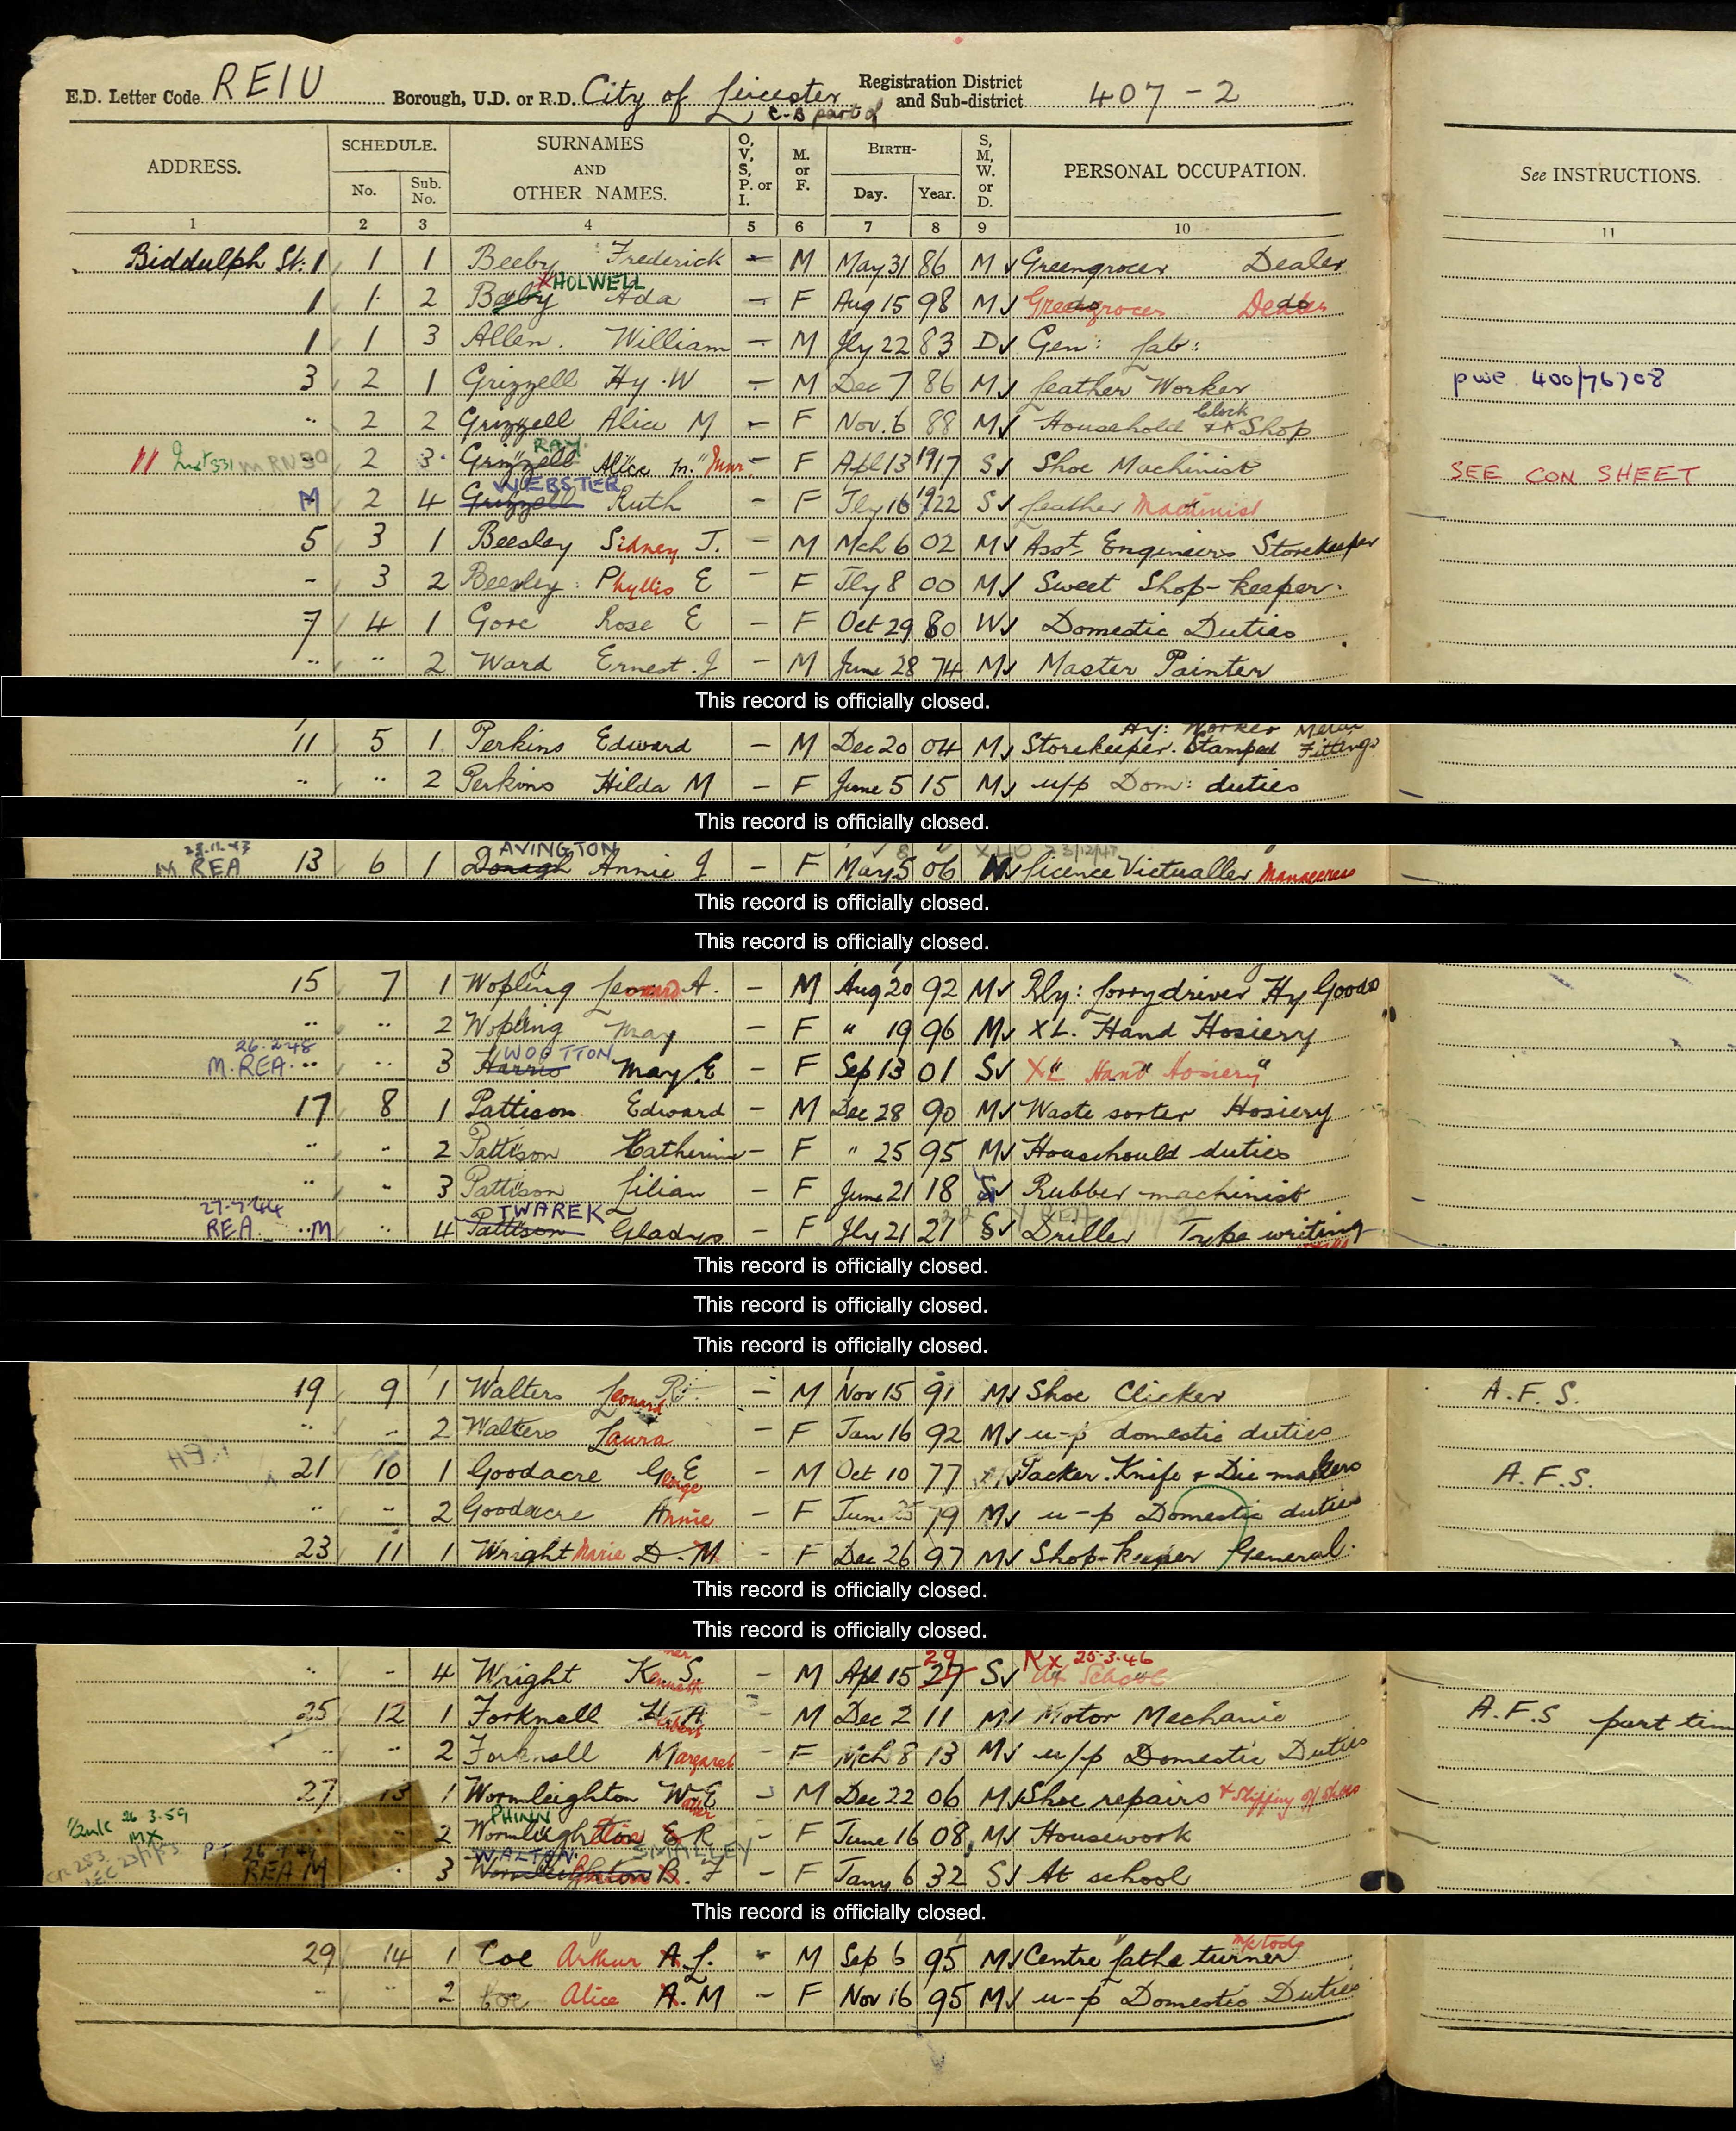 E.D. Letter Code REIU Borough, U.D. or R.D. City of Leicester C-B part of Registration District and Sub-district 407-2
ADDRESS. SCHEDULE. No. Sub. No. SURNAMES AND OTHER NAMES. O, V, S, P. or I. M. or F. BIRTH- Day. Year. S, M, W. or D. PERSONAL OCCUPATION. See INSTRUCTIONS.
1 2 3 4 5 6 7 8 9 10 11
Biddulph St. 1 1 1 Beeby Frederick - M May 31 86 M Greengrocer Dealer
HOLWELL
1 1 2 Beeby Ada - F Aug 15 98 M Greengrocer Dealer
1 1 3 Allen. William - M Jly 22 83 D Gen: Lab:
3 2 1 Grizzell Hy. W - M Dec 7 86 M Leather Worker pwe 400/76708
" 2 2 Grizzell Alice M - F Nov. 6 88 M Household Clerk Shop
RAY.
2 3 Grizzell Alice M. Junr - F Apl 13 1917 S Shoe Machinist SEE CON SHEET
WEBSTER
M 2 4 Grizzell Ruth - F Jly 16 1922 S Leather Machinist
5 3 1 Beesley Sidney J. - M Mch 6 02 M Asst. Engineers Storekeeper
- 3 2 Beesley Phyllis E - F Jly 8 00 M Sweet Shop-keeper
7 4 1 Gore Rose E - F Oct 29 80 W Domestic Duties
" " 2 Ward Ernest. J - M June 28 74 M Master Painter
This record is officially closed.
Hy: Worker Metal
11 5 1 Perkins Edward - M Dec 20 04 M Storekeeper. Stamped Fittings
" " 2 Perkins Hilda M - F June 5 15 M u/p Dom: duties
This record is officially closed.
AVINGTON
M REA 13 6 1 Annie J - F May 5 06 Licence Victualler Manageress
This record is officially closed.
This record is officially closed.
15 7 1 Wopling Leonard A. - M Aug 20 92 M Rly: Lorry driver Hy Goods
" " 2 Wopling May - F " 19 96 M XL. Hand Hosiery
26.2.48 WOOTTON
M. REA " " 3 Harris May E - F Sep 13 01 S XL Hand Hosiery
17 8 1 Pattison Edward - M Dec 28 90 M Waste sorter Hosiery
" " 2 Pattison Catherine - F " 25 95 M Househould duties
" " 3 Pattison Lilian - F June 21 18 S Rubber machinist
27-7-44 TWAREK
REA M " 4 Pattison Gladys - F Jly 21 21 S Driller Type writing
This record is officially closed.
This record is officially closed.
This record is officially closed.
19 9 1 Walters Leonard R. - M Nov 15 91 M Shoe Clicker A.F.S.
" - 2 Walters Laura - F Jan 16 92 M u-p domestic duties
21 10 1 Goodacre George E - M Oct 10 77 Packer. Knife & Die makers A.F.S.
" - 2 Goodacre Annie - F June 25 79 M u-p Domestic duties
23 11 1 Wright Marie D. M - F Dec 26 97 M Shop-keeper General.
This record is officially closed.
This record is officially closed.
29 Rx 25-3-46
" - 4 Wright Kenneth S. - M Apl 15 27 S At School
25 12 1 Forknall Herbert A - M Dec 2 11 M Motor Mechanic A.F.S part tim
" " 2 Forknall Margaret - F Mch 8 13 M u/p Domestic Duties
27 13 1 Wormleighton W. E - M Dec 22 06 M Shoe repairs
26.3.59 PHINN
MX 2 Wormleighton E R - F June 16 08 M Housework
WALTON SMALLEY
REA M 3 Wormleighton B. F - F Jany 6 32 S At school
This record is officially closed.
29 14 1 Coe Arthur A. L. - M Sep 6 95 M Centre Lathe turner
" 2 Coe Alice A. M - F Nov 16 95 M u-p Domestic Duties